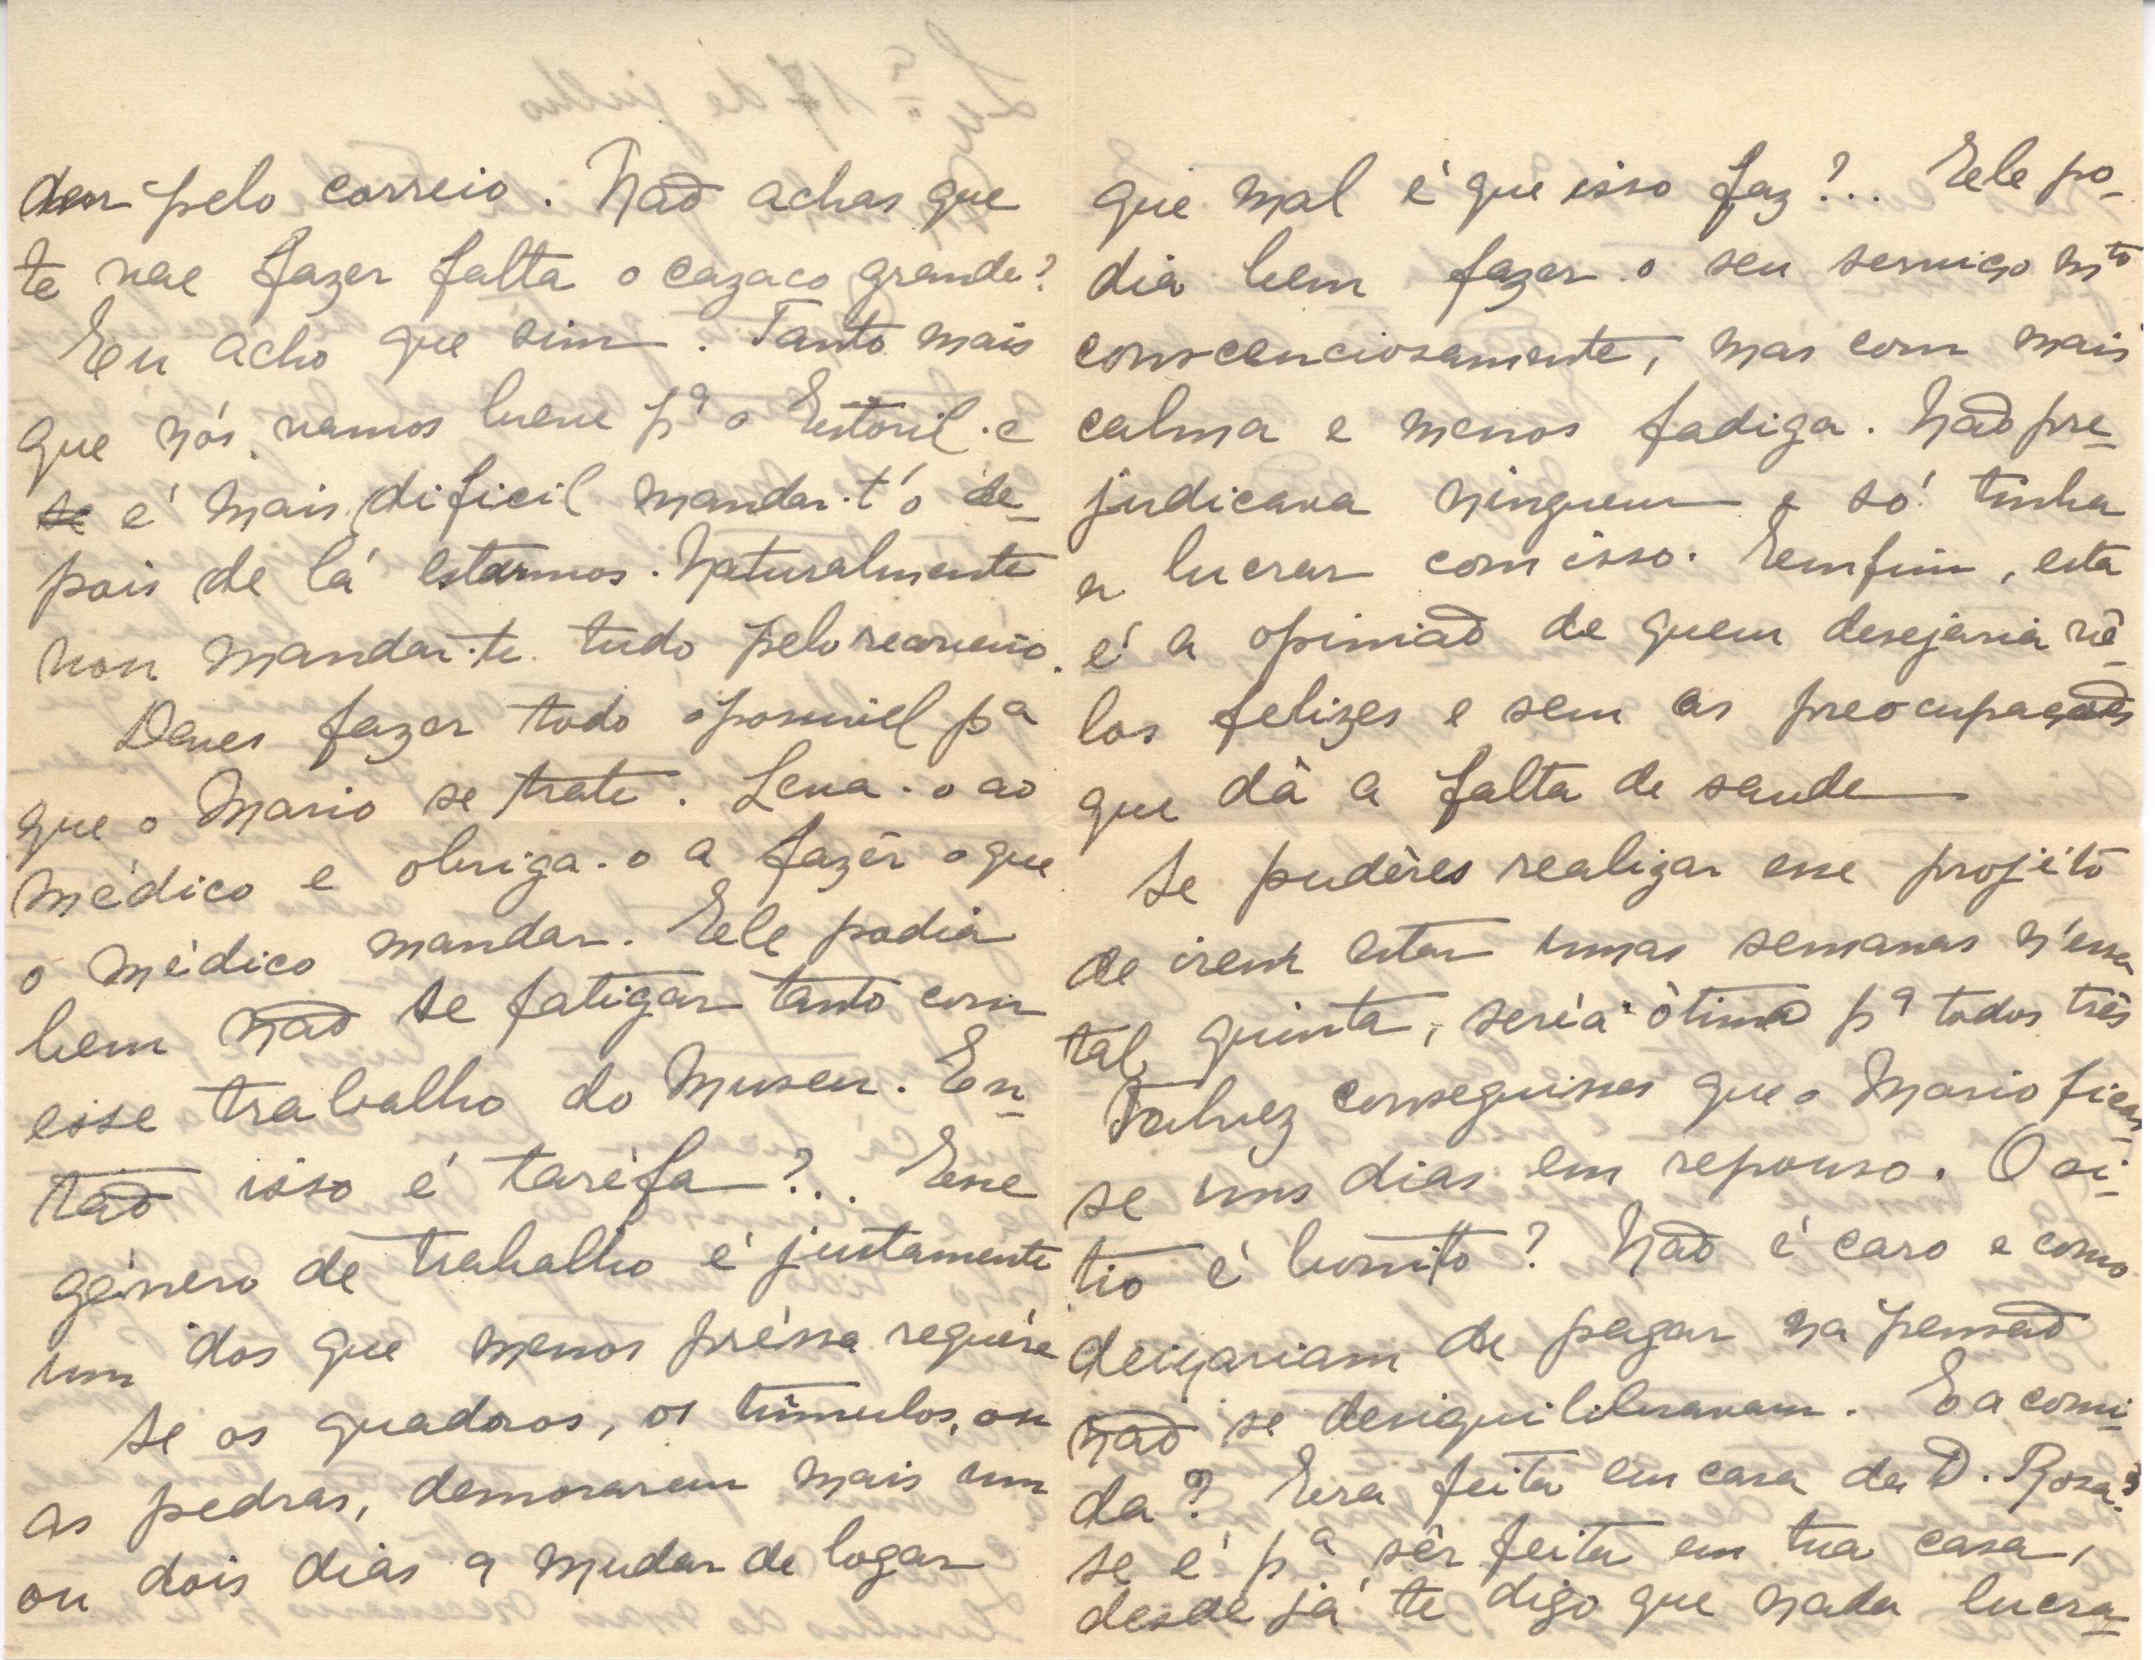 dar pelo correio. Não achas que
te vae fazer falta o cazaco grande?
Eu acho que sim. Tanto mais
que nós vamos breve pª o Estoril e
é mais dificil mandar-t'o de-
pois de lá estarmos. Naturalmente
vou mandar-te tudo pelo recoveiro.
Deves fazer todo o possivel pª
que o Mario se trate. Leva-o ao
médico e obriga-o a fazêr o que
o médico mandar. Ele podia
bem não se fatigar tanto com
esse trabalho do Museu. En-
tão isso é taréfa?... Esse
género de trabalho é justamente
um dos que menos préssa requére
Se os quadros, os túmulos, ou
as pedras, demorarem mais um
ou dois dias a mudar de logar
que mal é que isso faz?... Ele po-
dia bem fazer o seu serviço mto
conscenciosamente, mas com mais
calma e menos fadiga. Não pre-
judicava ninguem e só tinha
a lucrar com isso. Emfim, esta
é a opinião de quem desejaria vê-
los felizes e sem as preocupações
que dá a falta de saude
Se pudéres realizar esse projéto
de irem estar umas semanas n'essa
tal quinta, seria ótimo pª todos três
Talvez conseguisses que o Mario ficas-
se uns dias em repouso. O si-
tio é bonito? Não é caro e como
deixariam de pagar na pensão
não se desiquilibravam. E a comi-
da? Era feita em casa da D. Rosa?
se é pª sêr feita em tua casa,
desde já te digo que nada lucra-